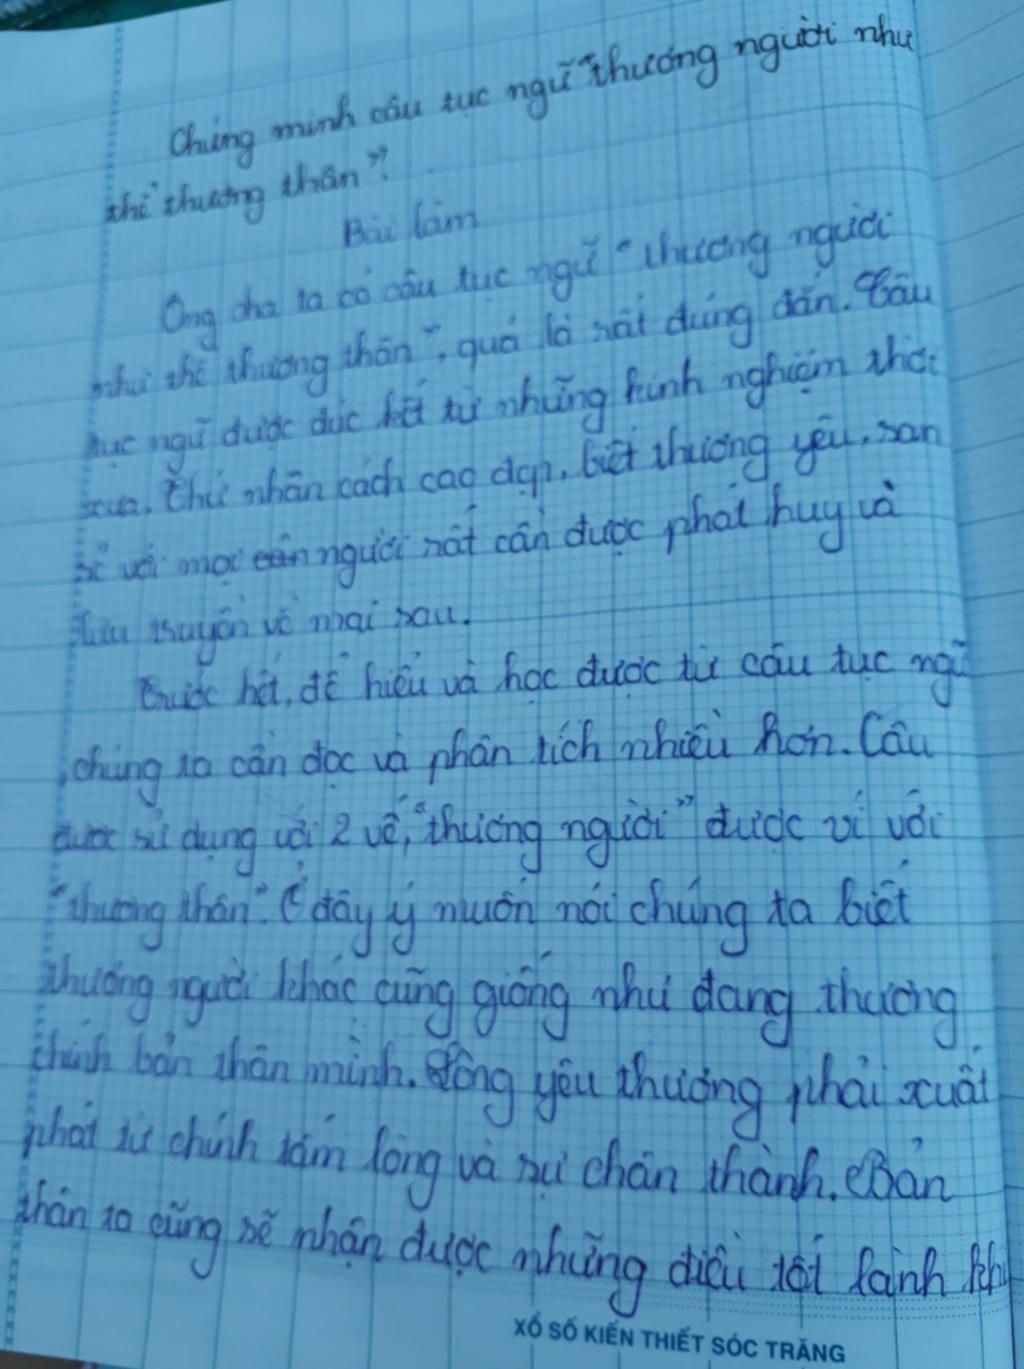 Chứng minh câu tục ngữ "thương người như
thể thương thân".
Bài làm
Ông cha ta có câu tục ngữ "thương người
như thể thương thân", quả là rất đúng đắn. Câu
tục ngữ được đúc kết từ những kinh nghiệm thời
xưa. Thứ nhân cách cao đẹp, biết thương yêu, san
sẻ với mọi người rất cần được phát huy và
lưu truyền về mai sau.
Trước hết, để hiểu và học được từ câu tục ngữ
chúng ta cần đọc và phân tích nhiều hơn. Câu
được sử dụng với 2 vế, "thương người" được ví với
"thương thân". Ở đây ý muốn nói chúng ta biết
thương người khác cũng giống như đang thương
chính bản thân mình. Lòng yêu thương phải xuất
phát từ chính tấm lòng và sự chân thành. Bản
thân ta cũng sẽ nhận được những điều tốt lành khi
XỔ SỐ KIẾN THIẾT SÓC TRĂNG